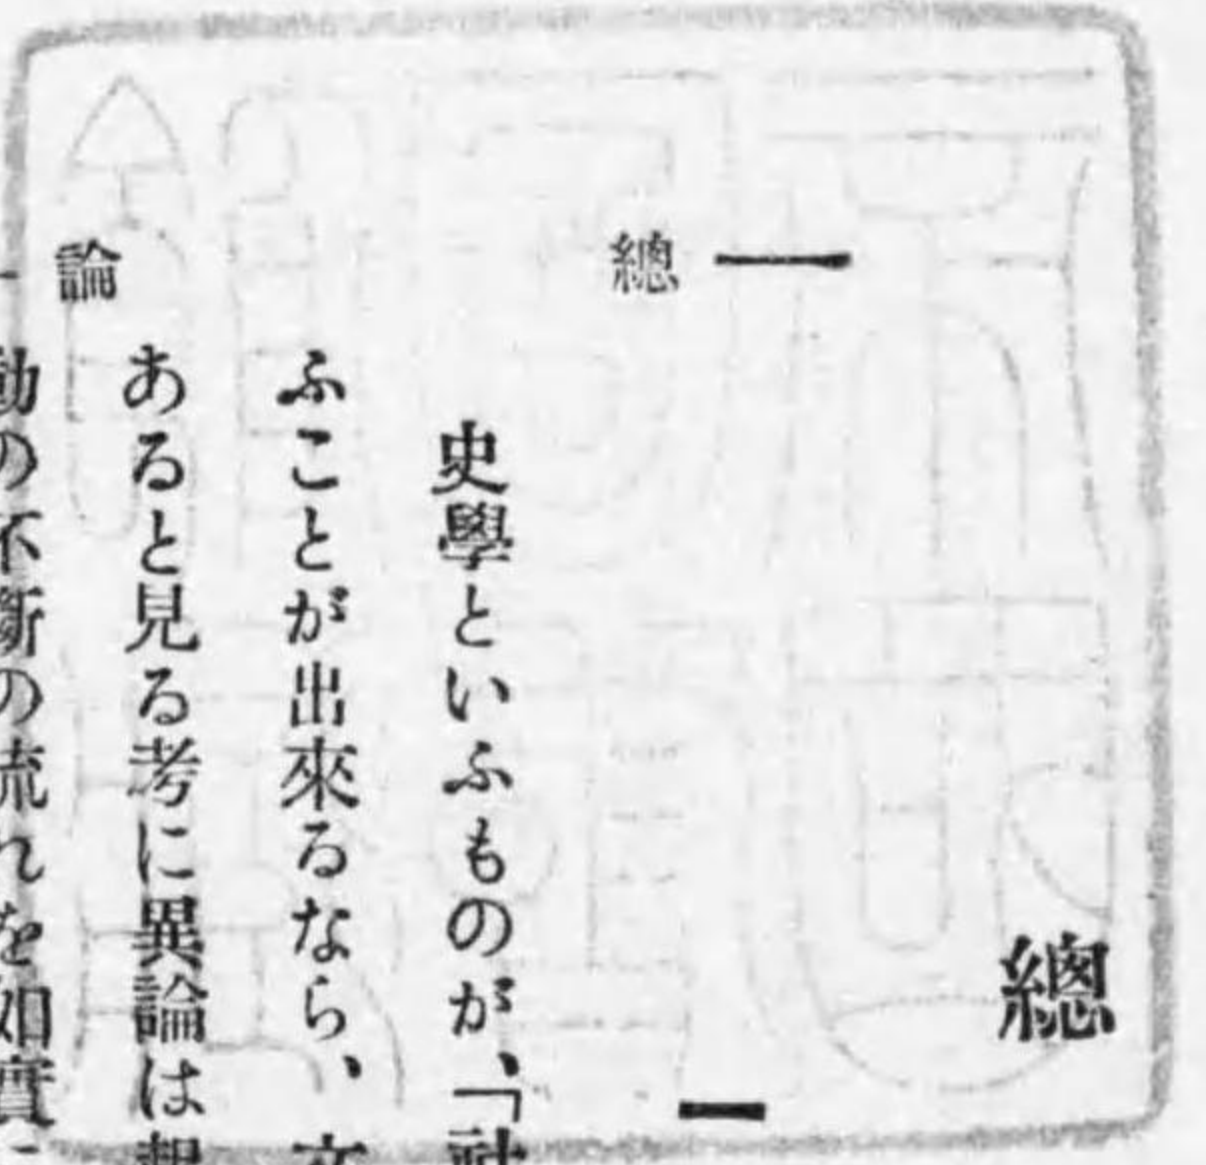 總
一
一 總 論
史學といふものが、「社
ふことが出來るなら、
あると見る考に異論は
動の不斷の流れを如實に